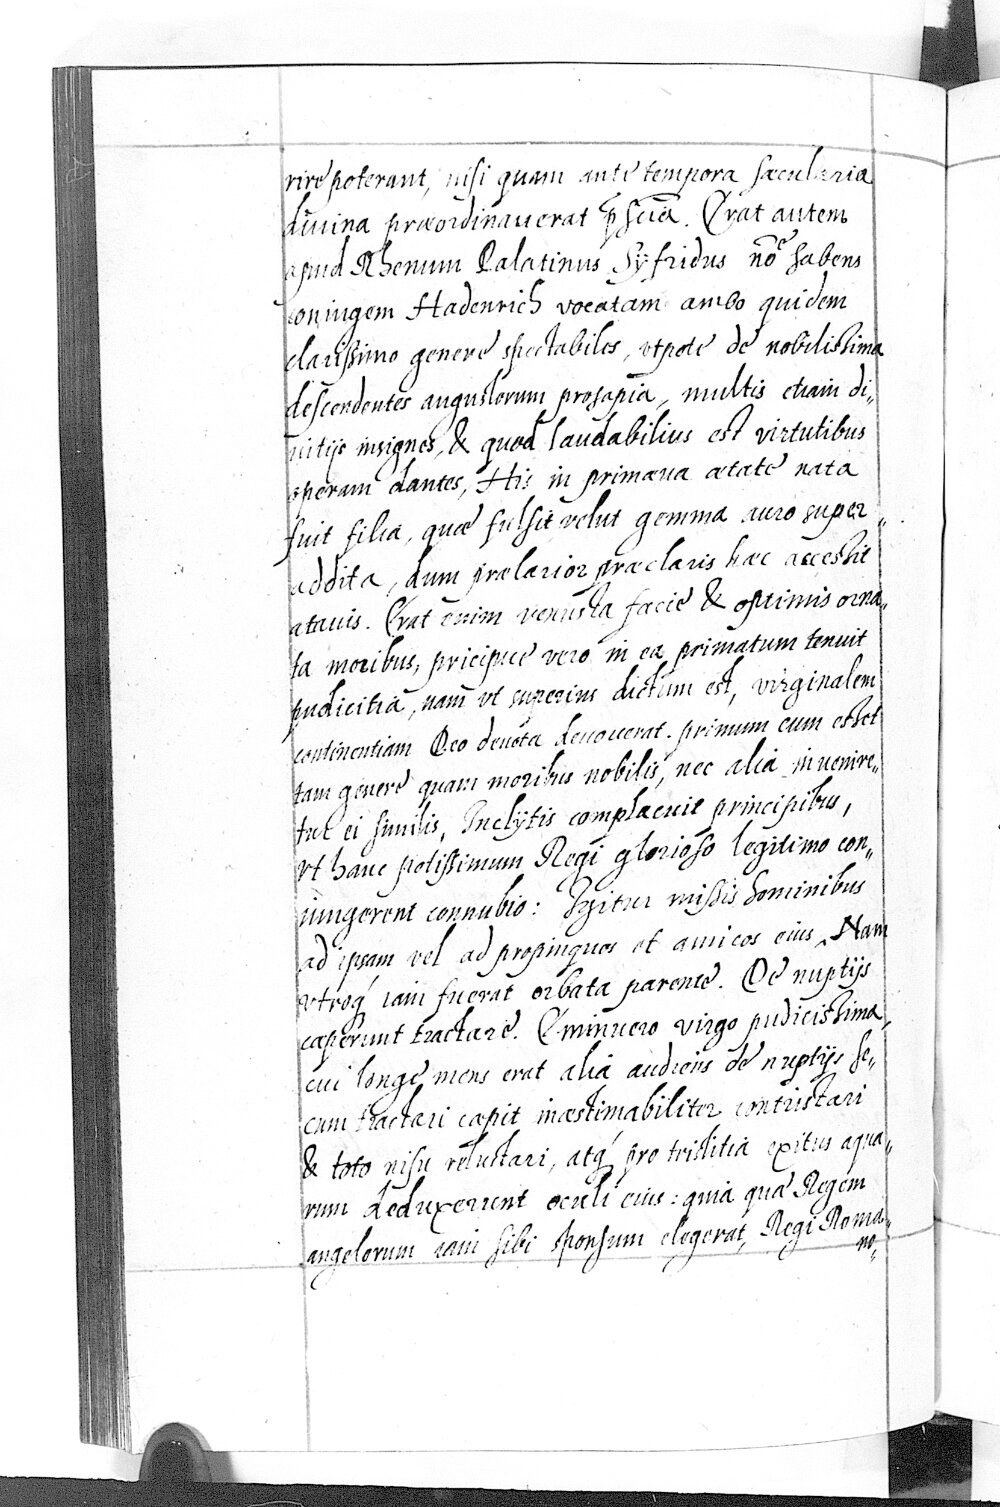 rire poterant, nisi quam ante tempora sæcularia
diuina præordinauerat p̱scia. Erat autem
apud Rhenum Palatinus Syfridus nōe habens
coniugem Hadenrich vocatam ambo quidem
clarissimo genere spectabiles, vtpote de nobilissima
descendentes augustorum prosapia, multis etiam di„
uitijs insignes, & quod laudabilius est virtutibus
operam dantes, His in primæua ætate nata
fuit filia, quæ fulsit velut gemma auro super„
addita, dum prælarior præclaris hæc accessit
atauis. Erat enim venusta facie & optimis orna„
ta moribus, pricipue vero in ea primatum tenuit
pudicitia, nam vt superius dictum est, virginalem
continentiam Deo deuota deuouerat. primum cum esset
tam genere quam moribus nobilis, nec alia inuenire„
tur ei similis, Inclytis complacuit principibus,
vt hanc potissimum Regi glorioso legitimo con„
iungerent connubio: Igitur missis hominibus
ad ipsam vel ad propinquos et amicos eius, Nam
vtroq́ iam fuerat orbata parente. De nuptijs
cæperunt tractare. Eminuero virgo pudicissima,
cui longe mens erat alia audiens de nuptijs se„
cum tractari cæpit inæstimabiliter contristari
& toto nisu reluctari, atq́ pro tristitia exitus aqua„
rum deduxerunt oculi eius: quia quæ Regem
angelorum iam sibi sponsum elegerat, Regi Roma„
no„